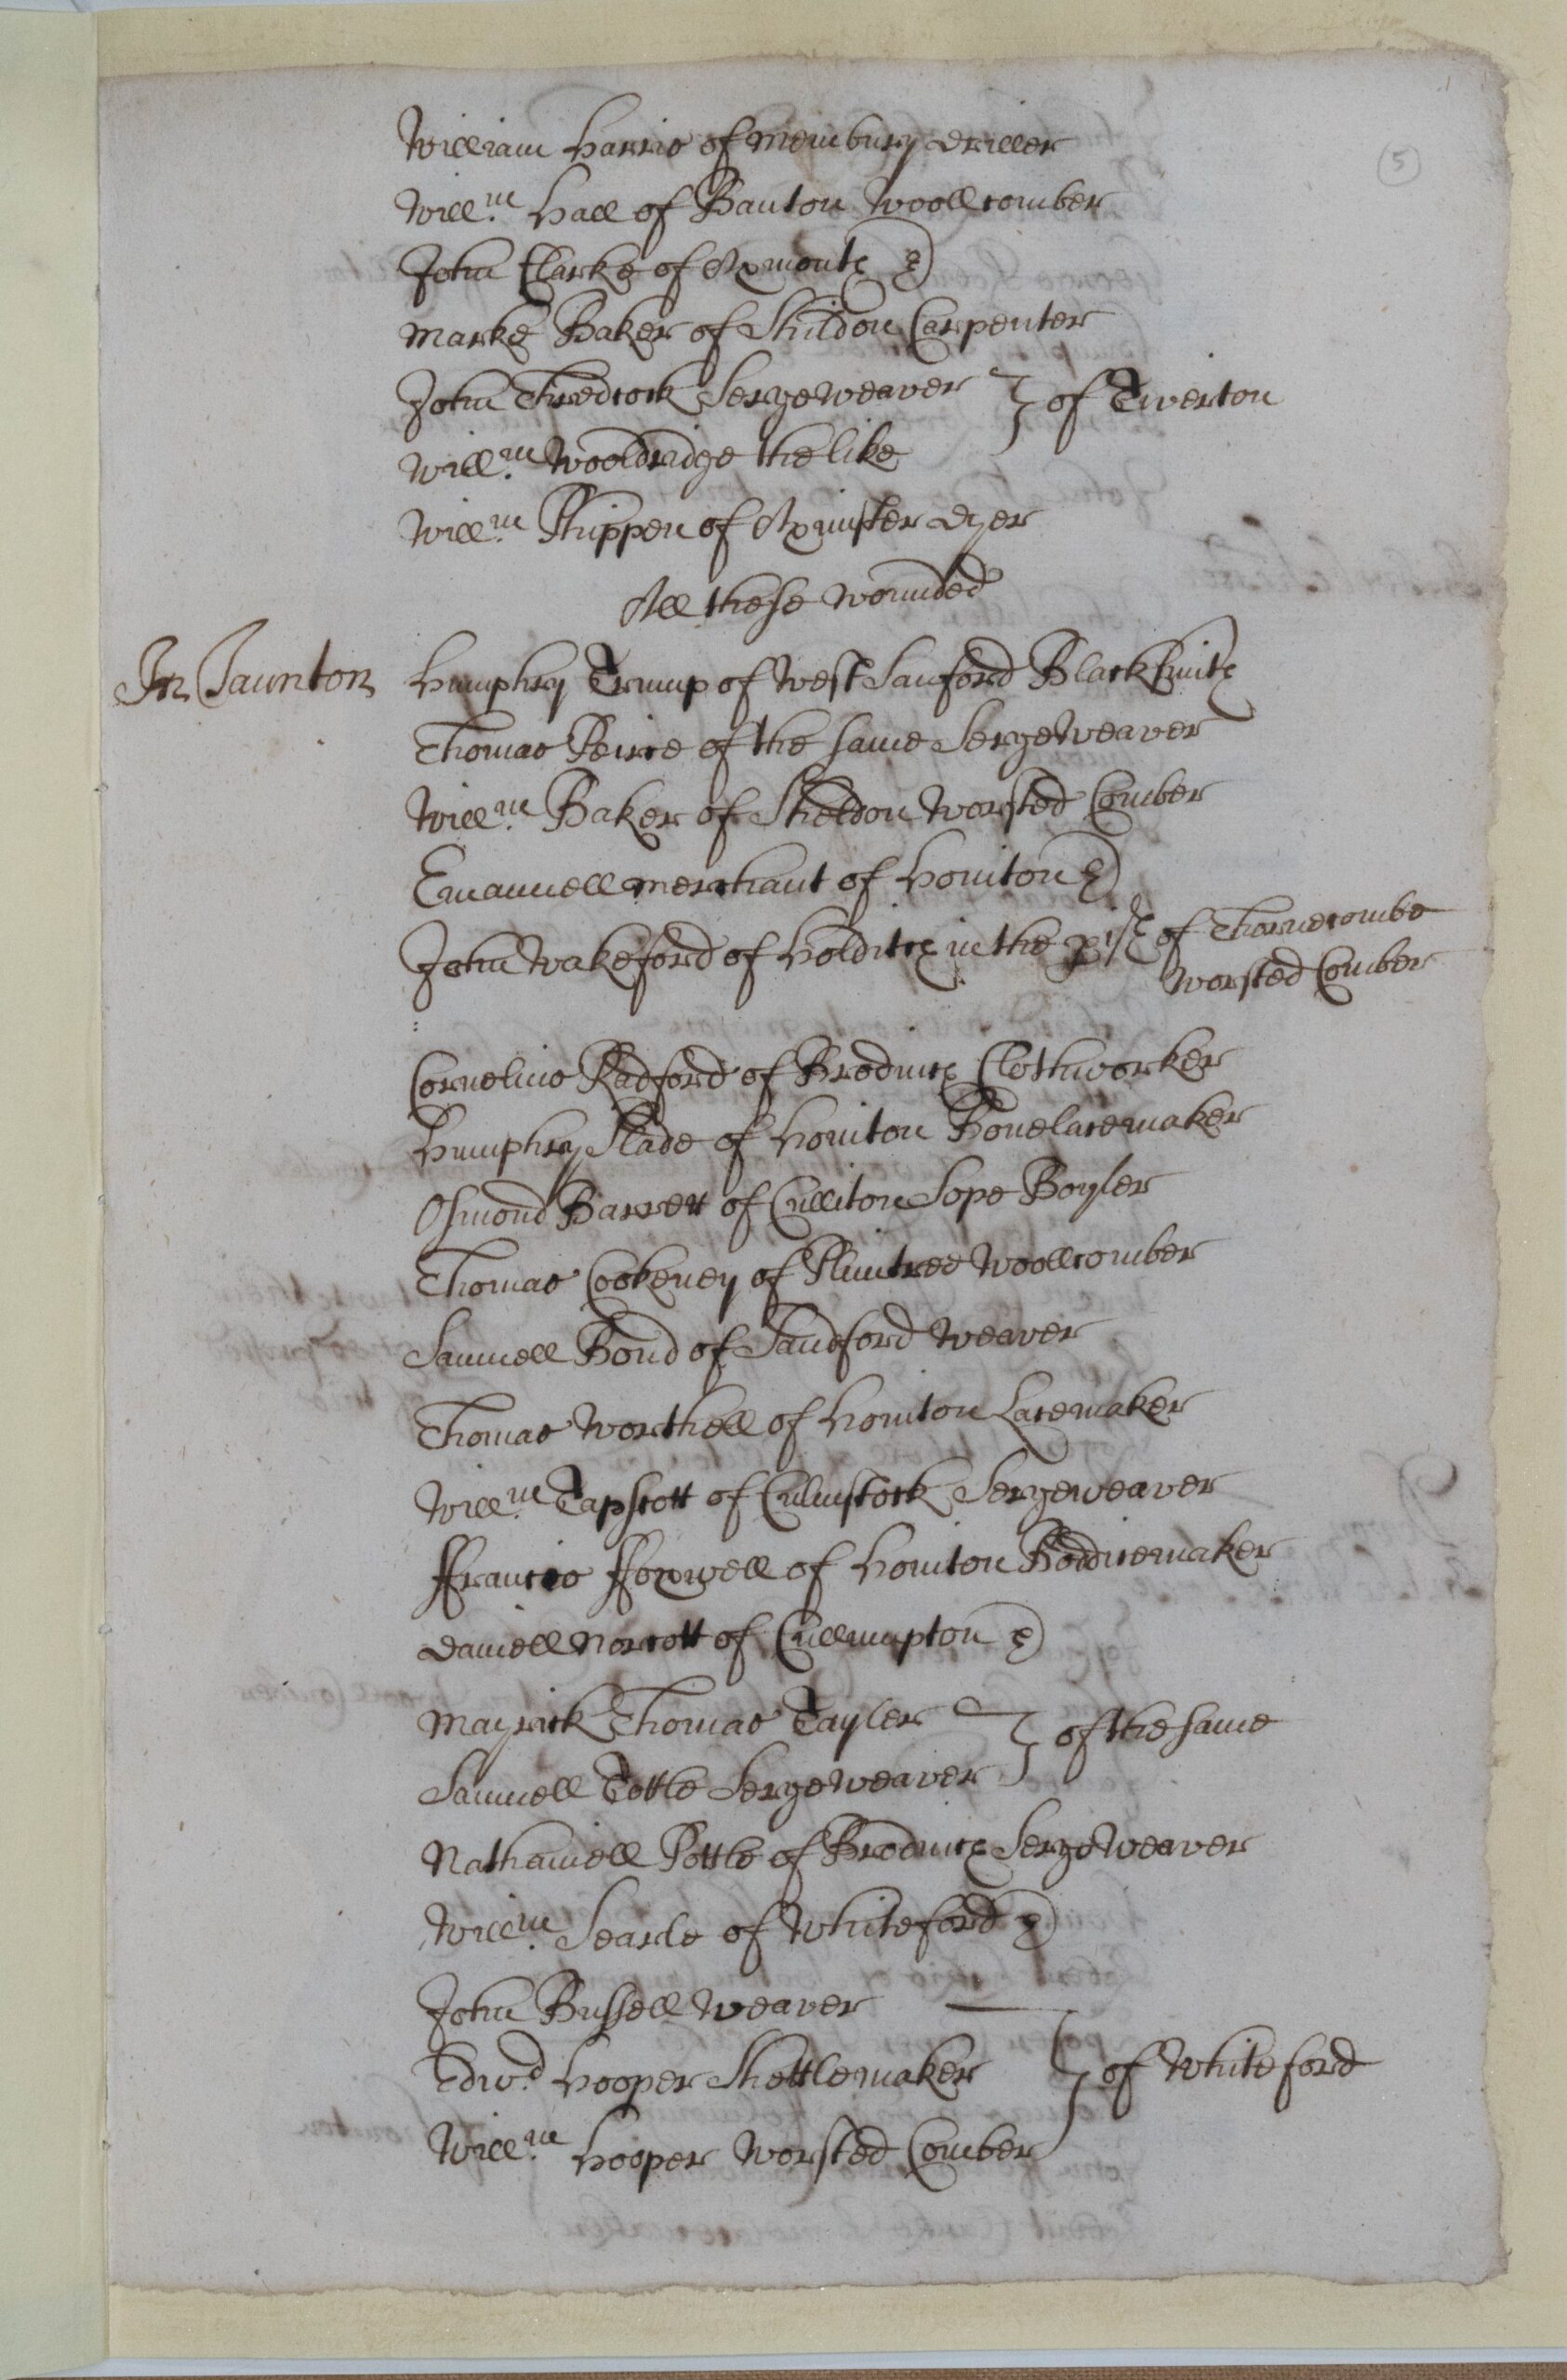 5
William Harris of Membury Driller
Will.m Hall of Banton Woollcomber
John Clarke of Axmouth
Marke Baker of Shildon Carpenter
John Thredcock Sergeweaver } of Tiverton
Will.m Wooldridge the like
Will.m Phippen of Axminster dyer
All these wounded
In Taunton Humphry Trump of West Sanford Blacksmith
Thomas Peirce of the same Sergeweaver
Will.m Baker of Sheldon Worsted Comber
Emanuell Merchant of Honiton
John Wakeford of Holditch in the pish of Thornecombe
Worsted Comber
Cornelius Radford of Brodnich Clothworker
Humphry Slade of Honiton Bonelacemaker
Osmond Barrett of Culliton Sope Boyler
Thomas Cookeney of Plimtree Woollcomber
Samuell Bond of Sandford Weaver
Thomas Worthell of Honiton Lacemaker
Will.m Tapscott of Culmstock Sergeweaver
ffrancis ffoxwell of Honiton Boddicemaker
Daniell Norcott of Cullmupton
Mayrick Thomas Tayler } of the same
Samuell Tottle Sergeweaver
Nathaniell Pottle of Brodnich Sergeweaver
Will.m Searle of Whiteford
John Bussell Weaver
Edw.d Hooper Shottlemaker } of Whiteford
Will.m Hooper Worsted Comber